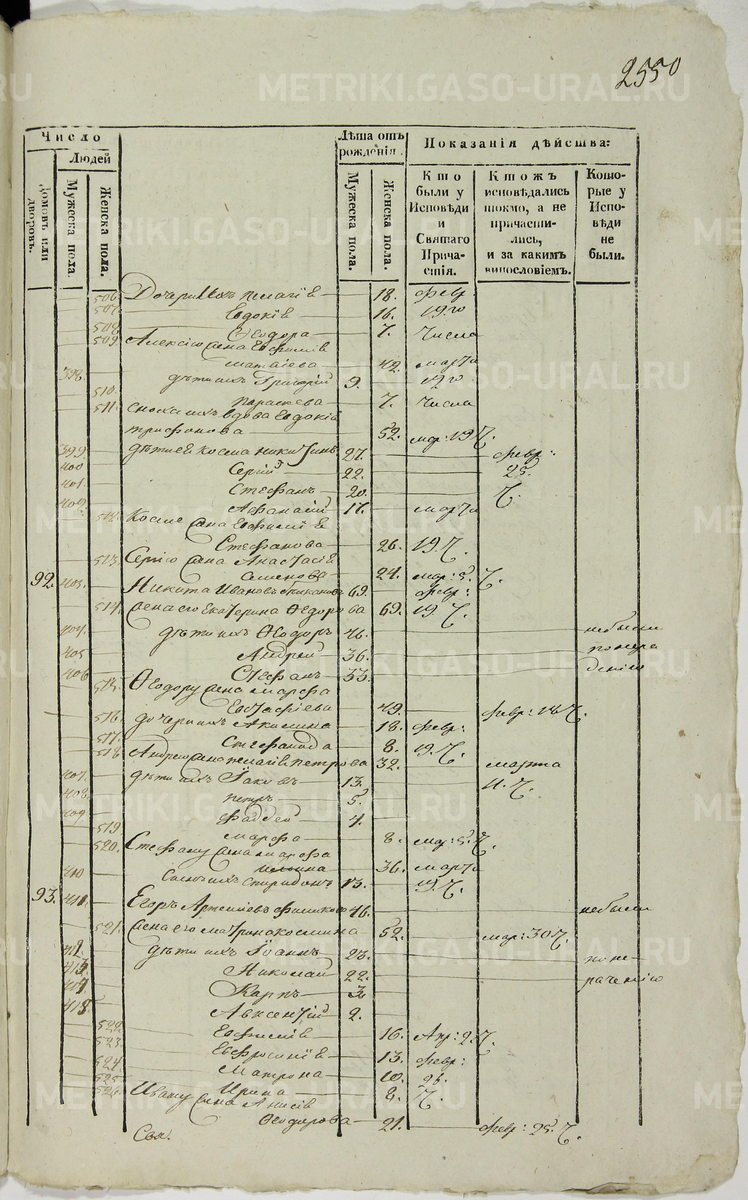 2550
Число
Людей
Домовъ или дворовъ.
Мужеска пола.
Женска пола.
Лѣта отъ рожденія.
Мужеска пола.
Женска пола.
Показанія дѣйства:
Кто были у Исповѣди и Святаго Причастія.
Ктожъ исповѣдались токмо, а не причастились, и за какимъ винословіемъ.
Которые у Исповѣди не были.
506. Дочери ихъ Пелагія 18. февр:
507. Евдокія 16. 19го
508. Ѳеодора 7. Числа
509. Алексію жена Евфимія
Матвіева 42. марта
398. дѣти ихъ Григорій 9. 19го
510. Параскева 7. Числа
511. сноха ихъ вдова Евдокія
Трифонова 52. мар: 19 Ч.
399. дѣти ея Косма Никитинъ 27. февр:
400. Сергій 22. 25.
401. Стефанъ 20. Ч.
402. Афанасій 16. марта
512. Косме жена Евфимія
Стефанова 26. 19 Ч.
513. Сергію жена Анастасія
Семенова 24. мар: 5. Ч.
92. 403. Никита Ивановъ 69. февр:
514. жена его Екатерина Ѳедорова 69. 19 Ч.
404. дѣти ихъ Ѳеодоръ 46. небыли
405. Андрей 36. понера
406. Стефанъ 33. дѣнію
515. Ѳеодору жена Марфа
Евстафіева 49. февр: 18 Ч.
516. дочери ихъ Акилина 18. февр:
517. Стефанида 8. 19. Ч.
518. Андрею жена Пелагія Петрова 32. марта
407. дѣти ихъ Іаковъ 13. 11. Ч.
408. Петръ 5.
409. Фаддей 4.
519. Марфа 8. мар: 5. Ч.
520. Стефану жена Марфа
36. марта
410. Сынъ ихъ Спиридонъ 13. 19. Ч.
93. 411. Егоръ Артеміевъ 46. небыли
521. жена его Матрона Космина 52. мар: 30 Ч.
412. дѣти ихъ Іоаннъ 23. поне-
413. Николай 22. раченію
414. Карпъ 3.
415. Авксентій 2.
522. Евфимія 16. Апр: 2. Ч.
523. Евфросинія 13. февр:
524. Матрона 10. 25.
525. Ирина 8. Ч.
526. Ивану жена Анисія
Ѳеодорова 21. февр: 25. Ч.
METRIKI.GASO-URAL.RU